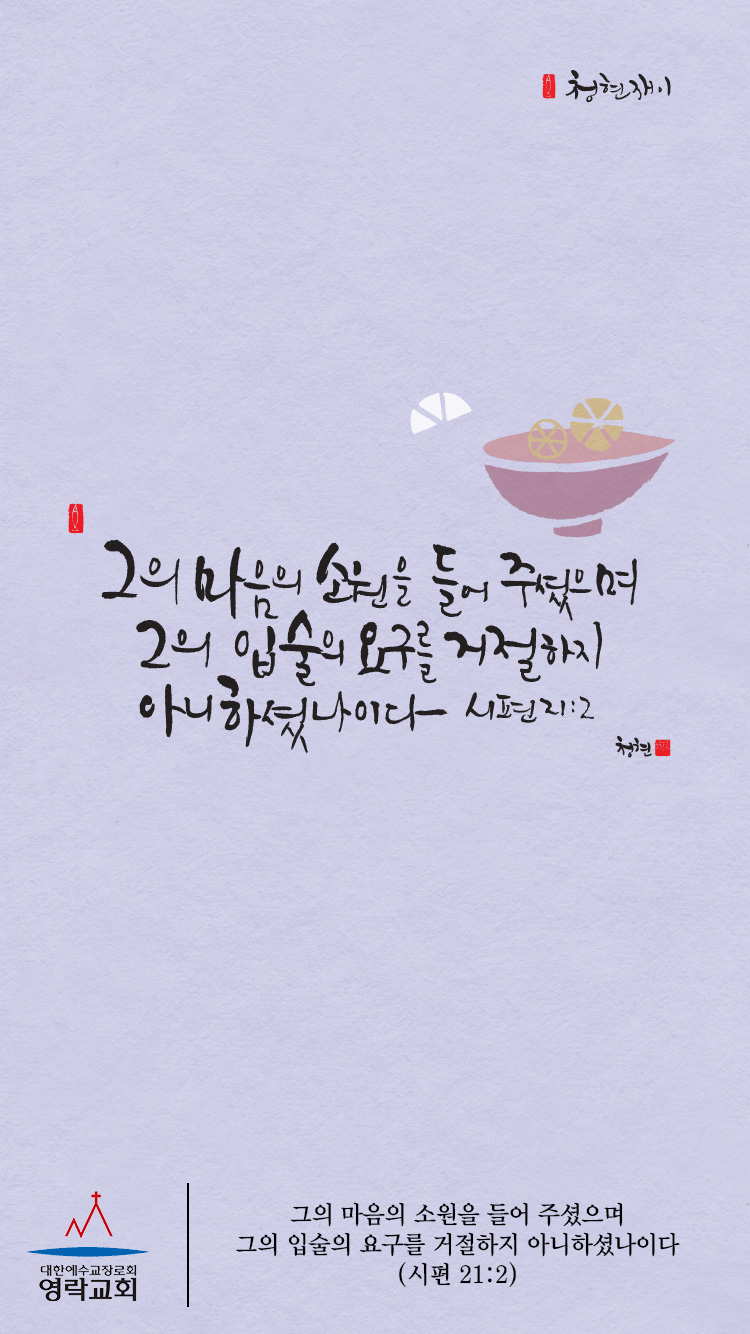 청현재이
그의 마음의 소원을 들어 주셨으며
그의 입술의 요구를 거절하지
아니하셨나이다 시편 21:2
청현
대한예수교장로회
영락교회
그의 마음의 소원을 들어 주셨으며
그의 입술의 요구를 거절하지 아니하셨나이다
(시편 21:2)